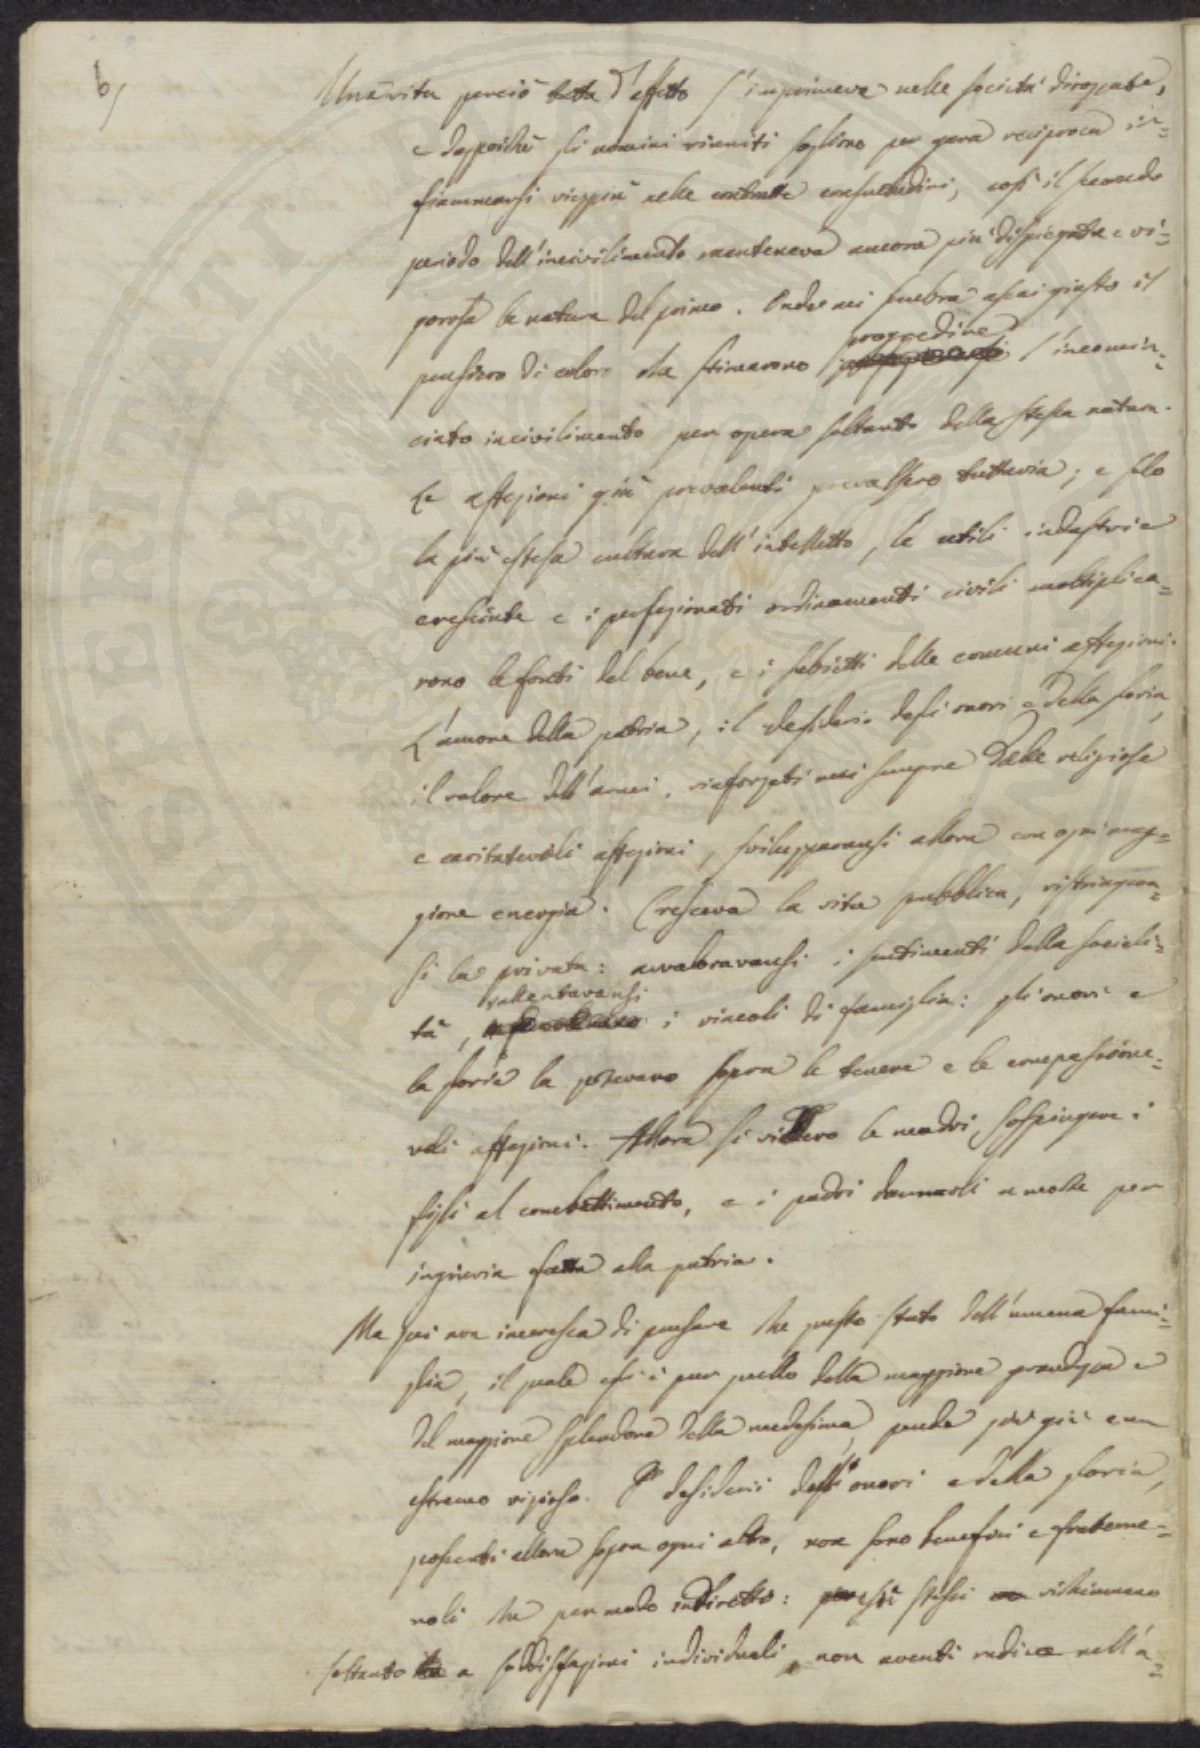 6/
Una vita perciò tutta d'affetto s'imprimeva nelle società dirozzate,
e daypoichè gli uomini riuniti sogliono per gara reciproca in=
fiammarsi vieppiù nelle contratte consuetudini, così il secondo
periodo dell'incivilimento manteneva ancora più dispiegata e vi=
gorosa la natura del primo. Onde mi sembra assai giusto il
progredire
pensiero di coloro che stimarono l'incomin=
ciato incivilimento per opera soltanto della stessa natura.
Le affezioni già prevalenti prevalsero tuttavia; e solo
la più estesa cultura dell'intelletto, le utili industrie
cresciute e i perfezionati ordinamenti civili moltiplica=
rono le fonti del bene, e i subietti delle comuni affezioni.
L'amore della patria, il desiderio degli onori e della gloria,
il valore dell'armi, rinforzati mai sempre dalle religiose
e caritatevoli affezioni, svilupparonsi allora con ogni mag=
giore energia. Cresceva la vita pubblica, ristringeva=
si la privata: avvaloravansi i sentimenti della sociali=
rallentavansi
tà, i vincoli di famiglia: gli onori e
la gloria la potevano sopra le tenere e le compassione=
voli affezioni. Allora si videro le madri sospingere i
figli al combattimento, e i padri dannarli a morte per
ingiuria fatta alla patria.
Ma qui non incresca di pensare che questo stato dell'umana fami=
glia, il quale essi è pur quello della maggiore grandezza e
del maggiore splendore della medesima, pende più giù a un
estremo vizioso. I desiderii degli onori e della gloria,
possenti allora sopra ogni altro, non sono benefici e frateme=
voli che per modo indiretto: essi stessi richiamano
soltanto a soddisfazioni individuali, non aventi radice nell'a=